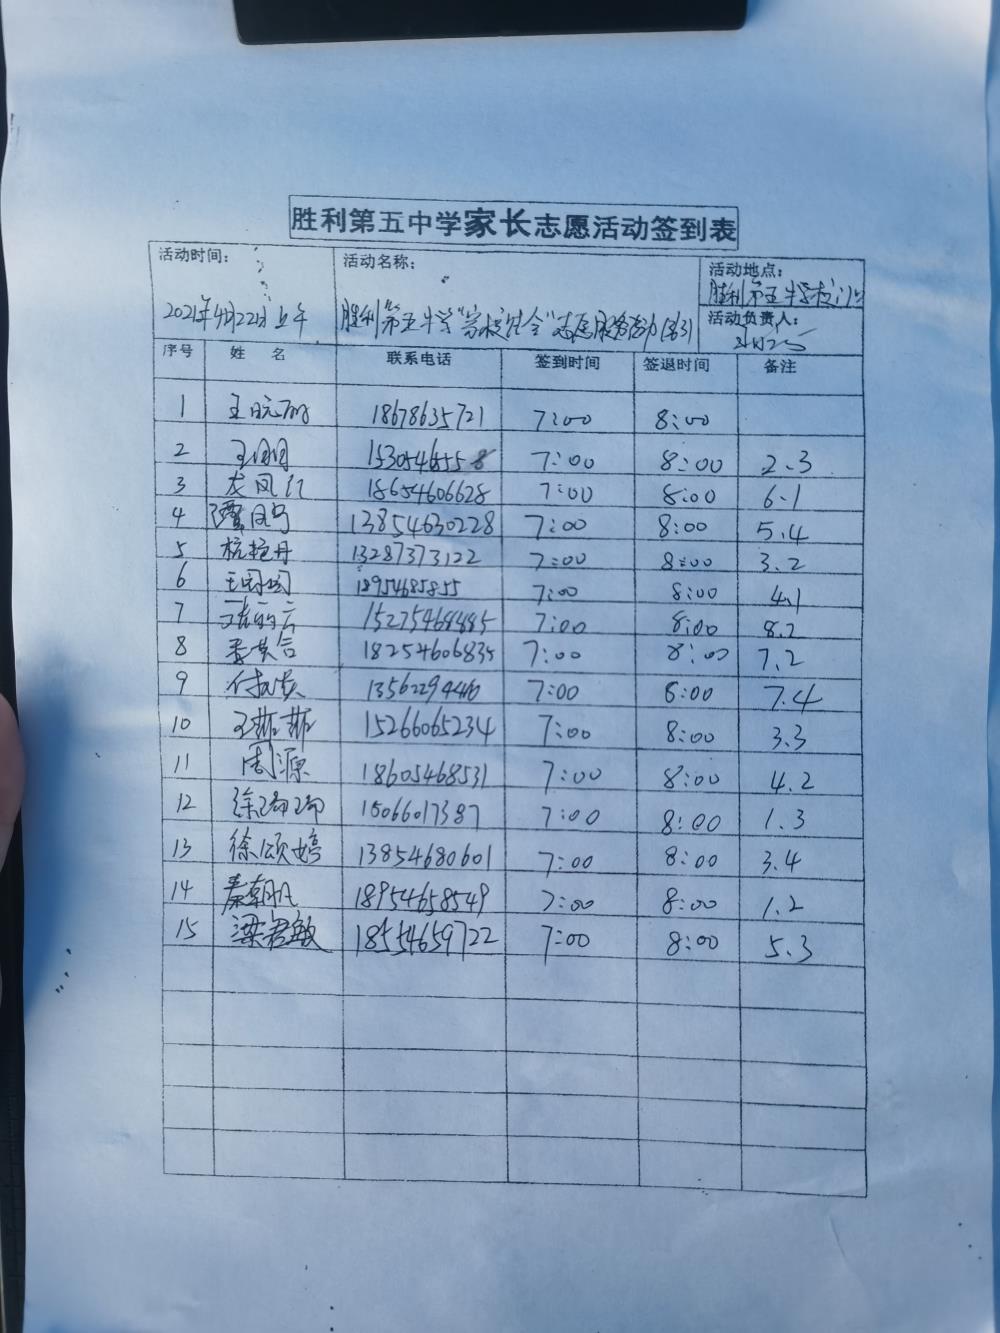 胜利第五中学家长志愿活动签到表
活动时间： 活动名称： 活动地点：
2021年4月22日上午 胜利第五中学"家校社会"志愿服务活动 胜利第五中学校门口
活动负责人：
序号 姓 名 联系电话 签到时间 签退时间 备注
1 王晓丽 18678635721 7:00 8:00
2 王丹丹 15305465558 7:00 8:00 2.3
3 18654606628 7:00 8:00 6.1
4 13854630228 7:00 8:00 5.4
5 杭艳丹 13287373122 7:00 8:00 3.2
6 18954685855 7:00 8:00 4.1
7 7:00 8:00 8.2
8 18254606835 7:00 8:00 7.2
9 7:00 8:00 7.4
10 王菲菲 15266065234 7:00 8:00 3.3
11 周源 18605468531 7:00 8:00 4.2
12 徐瑞瑞 15066017387 7:00 8:00 1.3
13 徐颂婷 13854680601 7:00 8:00 3.4
14 秦朝凡 18954658549 7:00 8:00 1.2
15 梁君敏 18554659722 7:00 8:00 5.3